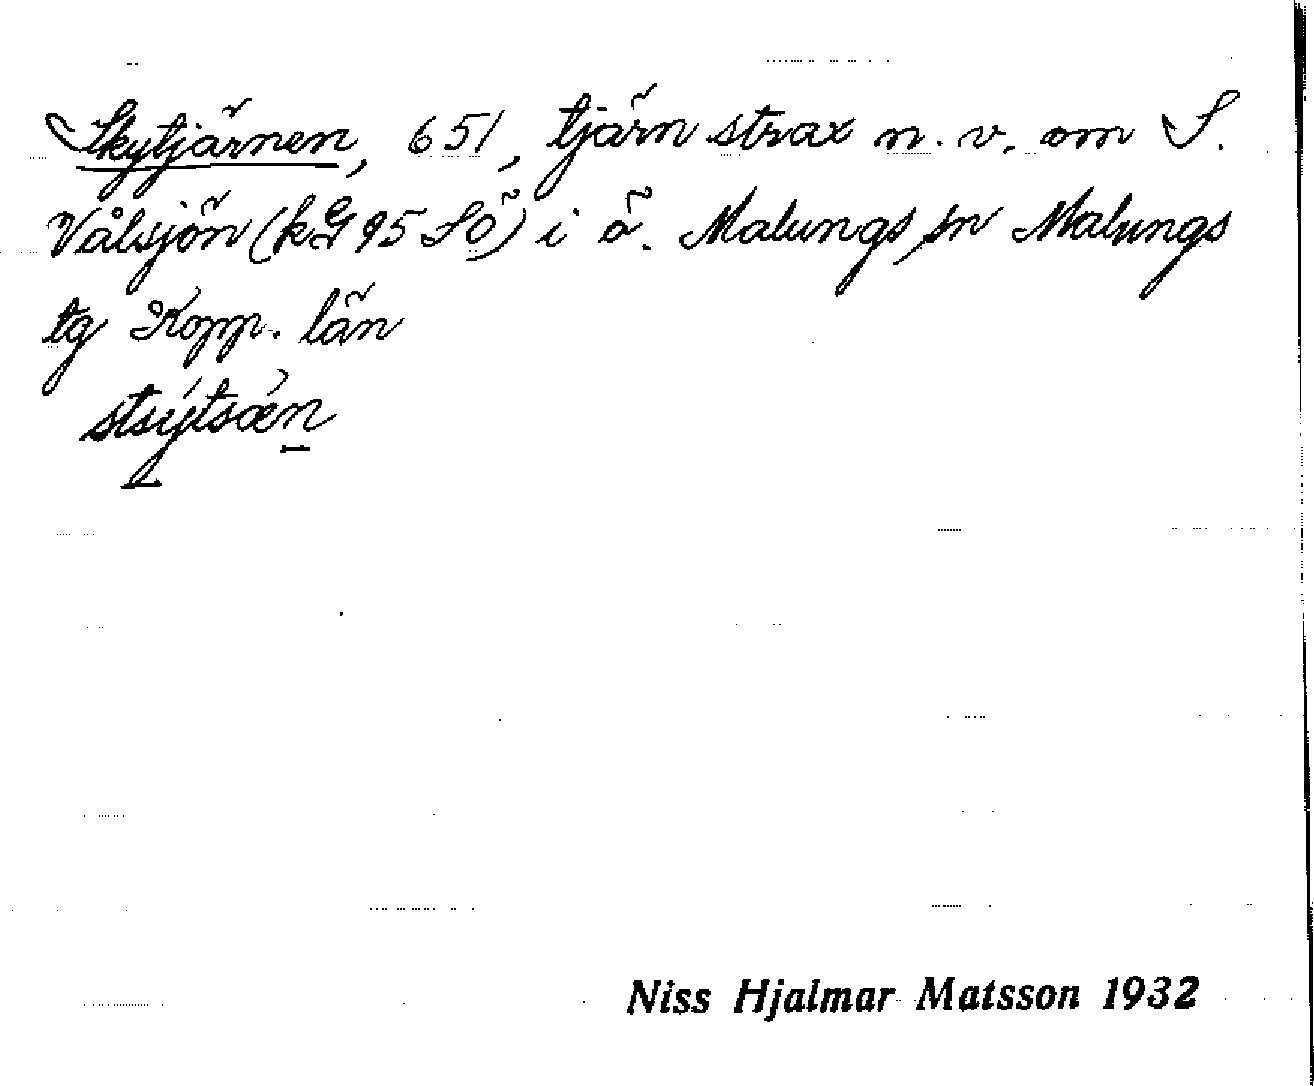 Skytjärnen, 651, tjärn strax n. v. om S.
Vålsjön (kG 95 SÖ) i ö. Malungs sn Malungs
tg Kopp. län
stsýtsœ́n
Niss Hjalmar Matsson 1932